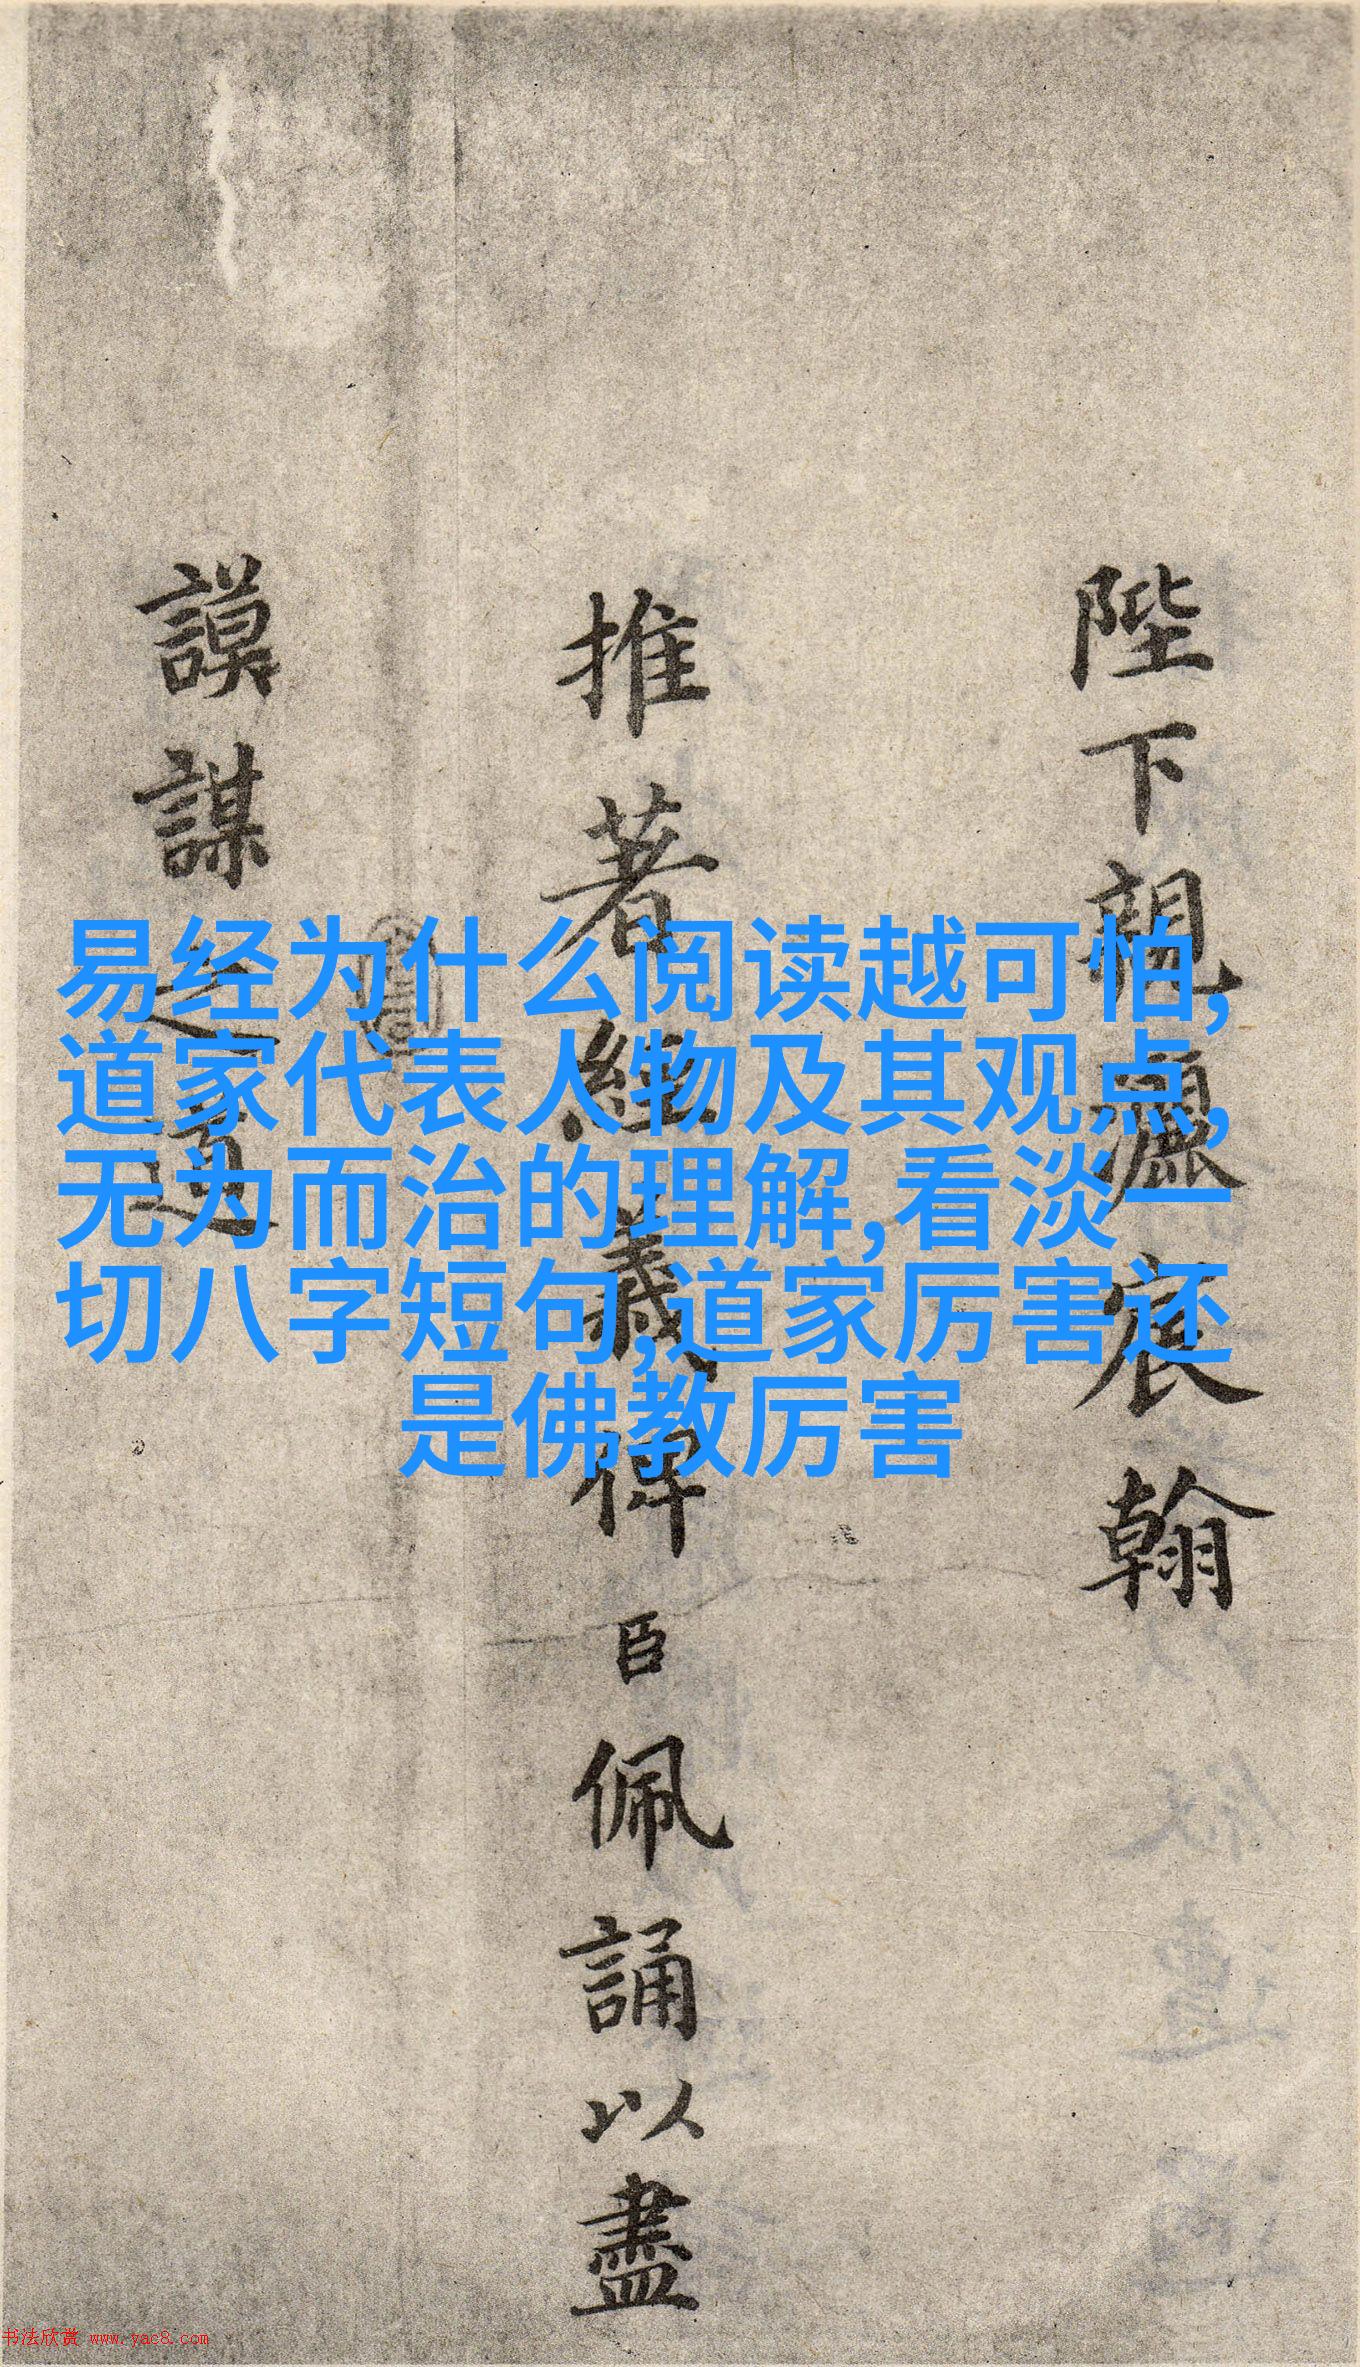 陛下親灑宸翰
推著經義俾臣佩誦以盡
謨謀之道
易经为什么阅读越可怕,
道家代表人物及其观点,
无为而治的理解,看淡一
切八字短句,道家厉害还
是佛教厉害
书法欣赏 www.yac8.com